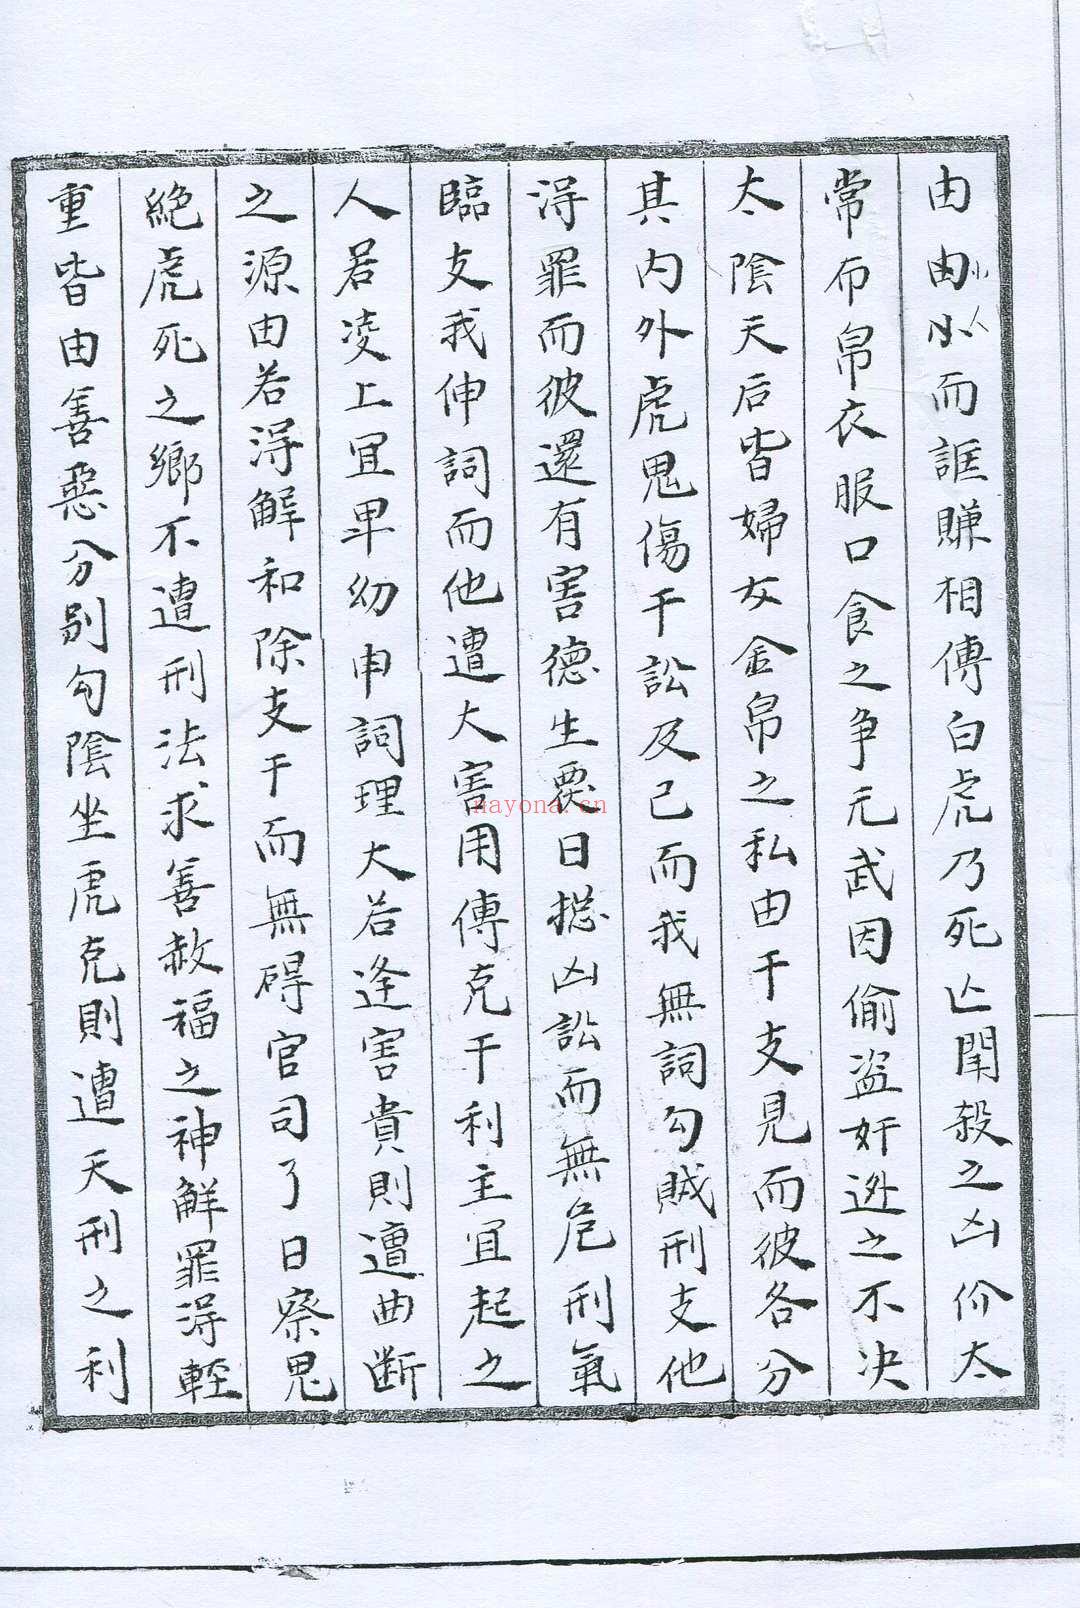 由由小人小而誆賺相傳白虎乃死亾閗殺之凶价太
常布帛衣服口食之争元武因偷盗奸迯之不决
太陰天后皆婦女金帛之私由干支見而彼各分
其内外虎鬼傷干訟及己而我無詞勾贼刑支他
淂罪而彼還有害德生兩日揔凶訟而無危刑氣
臨支我伸詞而他遭大害用傳克干利主宜起之
人若凌上宜卑幼申詞理大若逢害貴則遭曲断
之源由若淂解和除支干而無碍官司了日察鬼
絶虎死之鄉不遭刑法求善赦福之神解罪淂輊
重皆由善惡分别勾陰坐虎克則遭天刑之利
nayona.cn